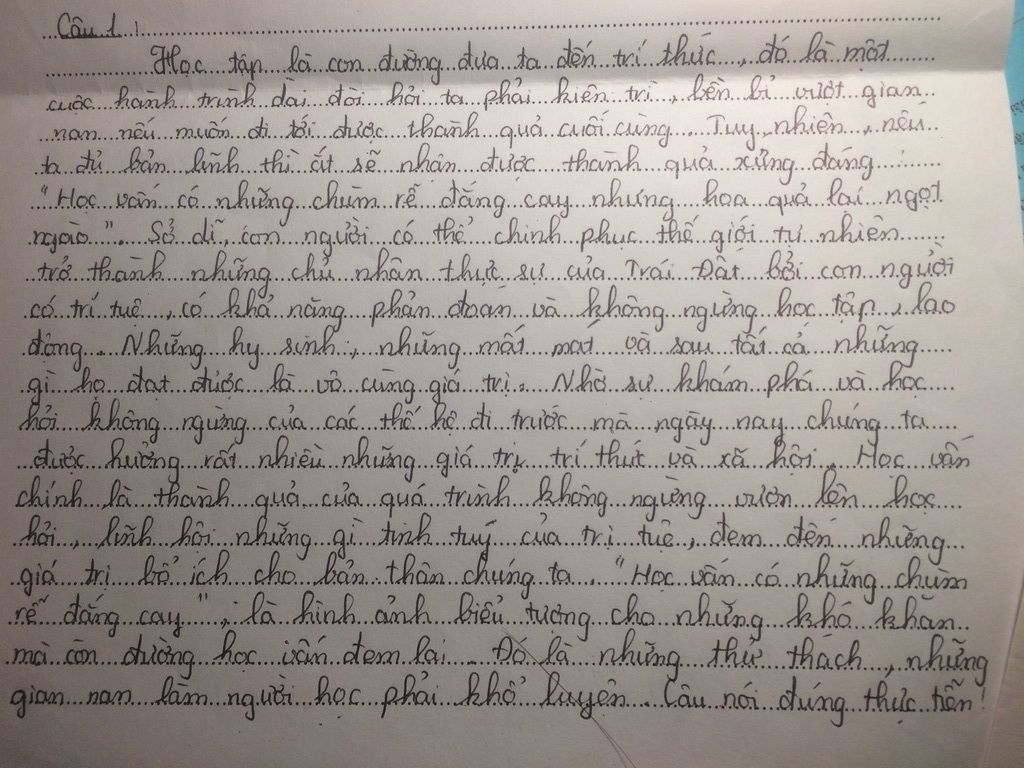 Câu 1
Học tập là con đường đưa ta đến trí thức, đó là một
cuộc hành trình dài đòi hỏi ta phải kiên trì, bền bỉ vượt gian
nan nếu muốn đi tới được thành quả cuối cùng. Tuy nhiên, nếu
ta đủ bản lĩnh thì ắt sẽ nhận được thành quả xứng đáng :
"Học vấn có những chùm rễ đắng cay nhưng hoa quả lại ngọt
ngào". Sở dĩ, con người có thể chinh phục thế giới tự nhiên
trở thành những chủ nhân thực sự của Trái Đất bởi con người
có trí tuệ, có khả năng phản đoán và không ngừng học tập, lao
động. Những hy sinh, những mất mát và sau tất cả những
gì họ đạt được là vô cùng giá trị. Nhờ sự khám phá và học
hỏi không ngừng của các thế hệ đi trước mà ngày nay chúng ta
được hưởng rất nhiều những giá trị trí thức và xã hội. Học vấn
chính là thành quả của quá trình không ngừng vươn lên học
hỏi, lĩnh hội những gì tinh tuý của trí tuệ, đem đến những
giá trị bổ ích cho bản thân chúng ta. "Học vấn có những chùm
rễ đắng cay", là hình ảnh biểu tượng cho những khó khăn
mà côn đường học vấn đem lại. Đó là những thử thách, những
gian nan làm người học phải khổ luyện. Câu nói đúng thực tiễn!